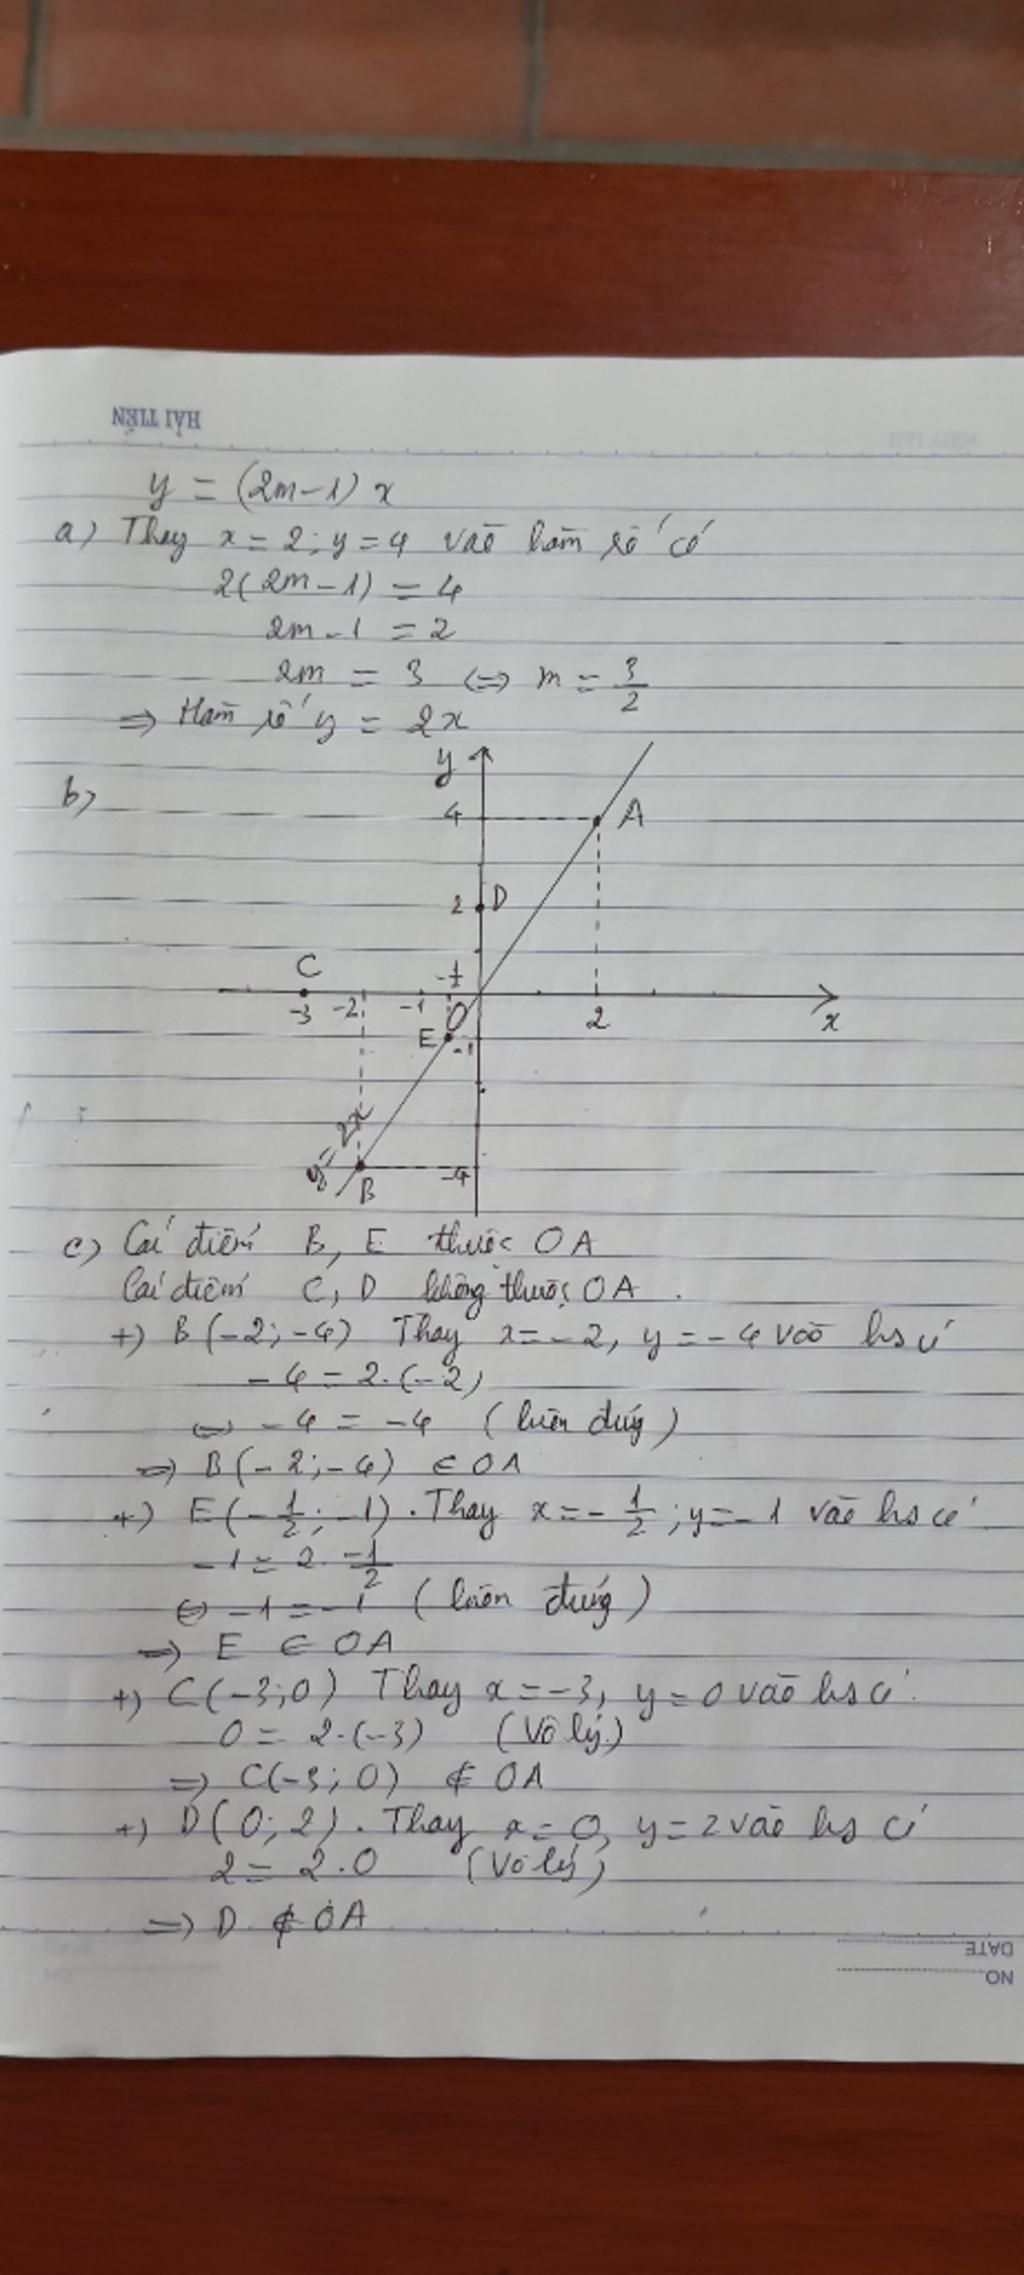 HẢI TIẾN
y = (2m-1) x
a) Thay x = 2; y = 4 vào hàm số có
2(2m-1) = 4
2m-1 = 2
2m = 3 <=> m = 3/2
=> Hàm số y = 2x
b)
y
4
A
2
D
C
-1/2
-3
-2
-1
O
2
x
E
-1
y = 2x
-4
B
c) Các điểm B, E thuộc OA
Các điểm C, D không thuộc OA.
+) B(-2; -4) Thay x=-2, y=-4 vào hs có
-4 = 2.(-2)
<=> -4 = -4 (luôn đúng)
=> B(-2; -4) ∈ OA
+) E(-1/2; -1). Thay x = -1/2; y=-1 vào hs có
-1 = 2. -1/2
<=> -1 = -1 (luôn đúng)
=> E ∈ OA
+) C(-3; 0) Thay x = -3, y = 0 vào hs có
0 = 2.(-3) (Vô lý)
=> C(-3; 0) ∉ OA
+) D(0; 2). Thay x = 0, y = 2 vào hs có
2 = 2.0 (Vô lý)
=> D ∉ OA
DATE
NO